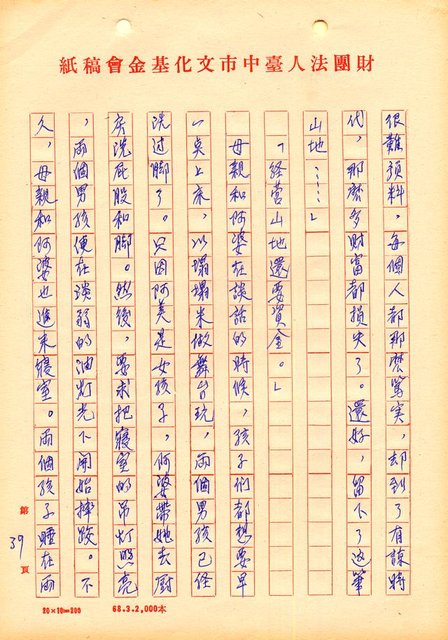 財團法人臺中市文化基金會稿紙
很難預料。每個人都那麼篤實，却到了有該時
代，那麼多財富都損失了。還好，留下了这筆
山地……」
「经营山地還要資金。」
母親和阿婆在談話的時候，孩子们都想要早
一桌上床，以塌塌米做舞台玩，兩個男孩已经
洗过脚了。只因阿美是女孩子，阿婆帶她去廚
房洗屁股和脚。然後，要求把寢室的吊灯照亮
，兩個男孩便在淡弱的油灯光下開始摔跤。不
久，母親和阿婆也進来寢室。兩個孩子睡在兩
第39頁
20×10=200
68.3.2,000本